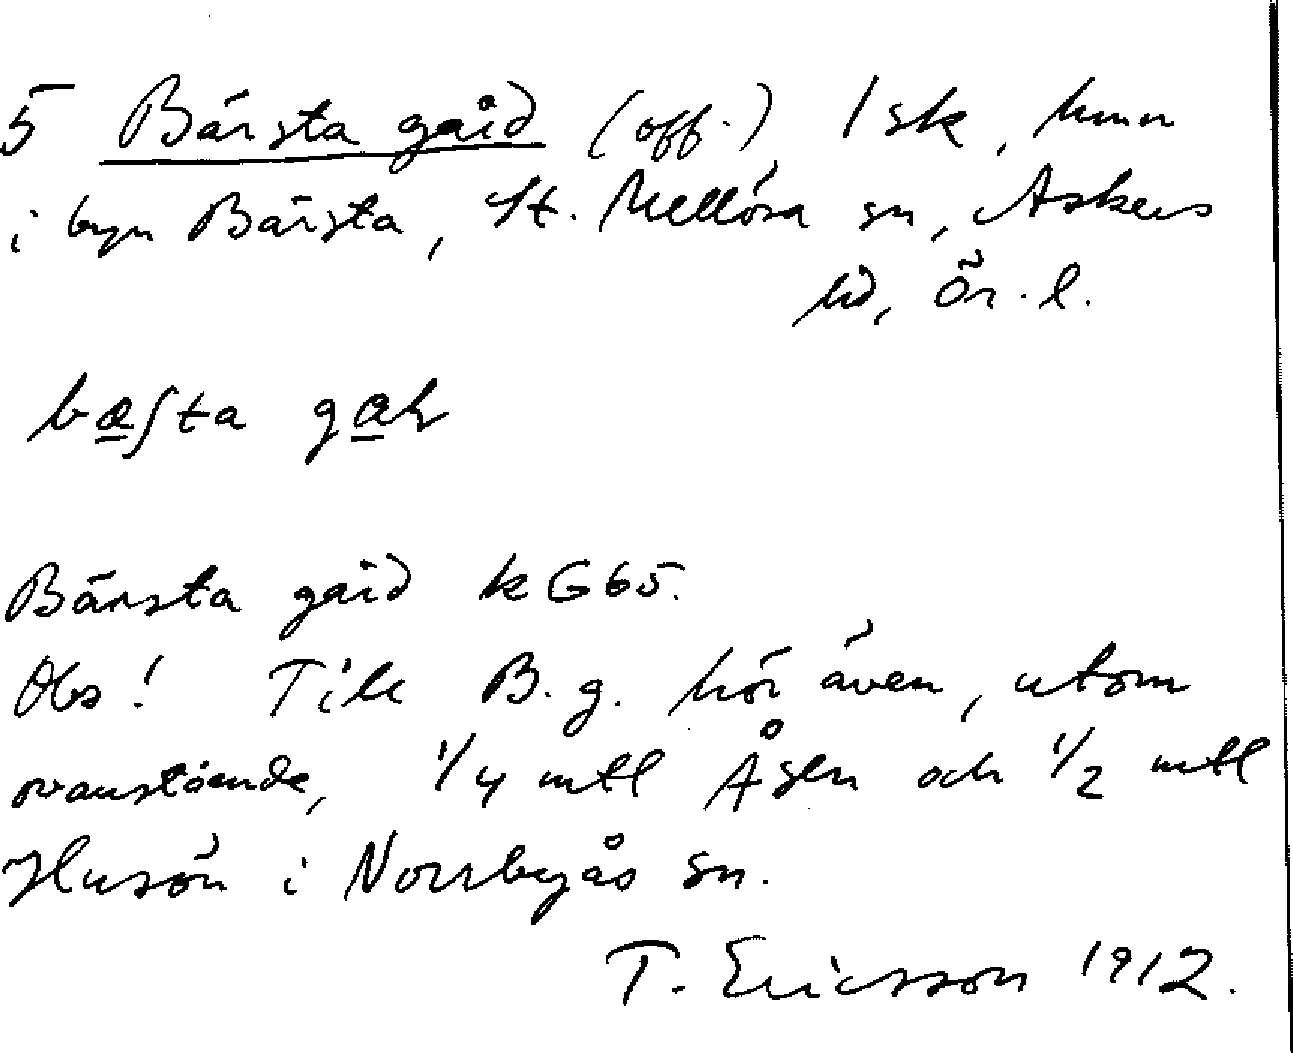 5 Bärsta gård (off.) 1 sk, hmn
i byn Bärsta, St. Mellösa sn, Askers
hd, Ör. l.
bæʃta gaɽ
Bärsta gård k G65.
Obs! Till B. g. hör även, utom
ovanstående, 1/4 mtl Åsen och 1/2 mtl
Husön i Norrbyås sn.
T. Ericsson 1912.